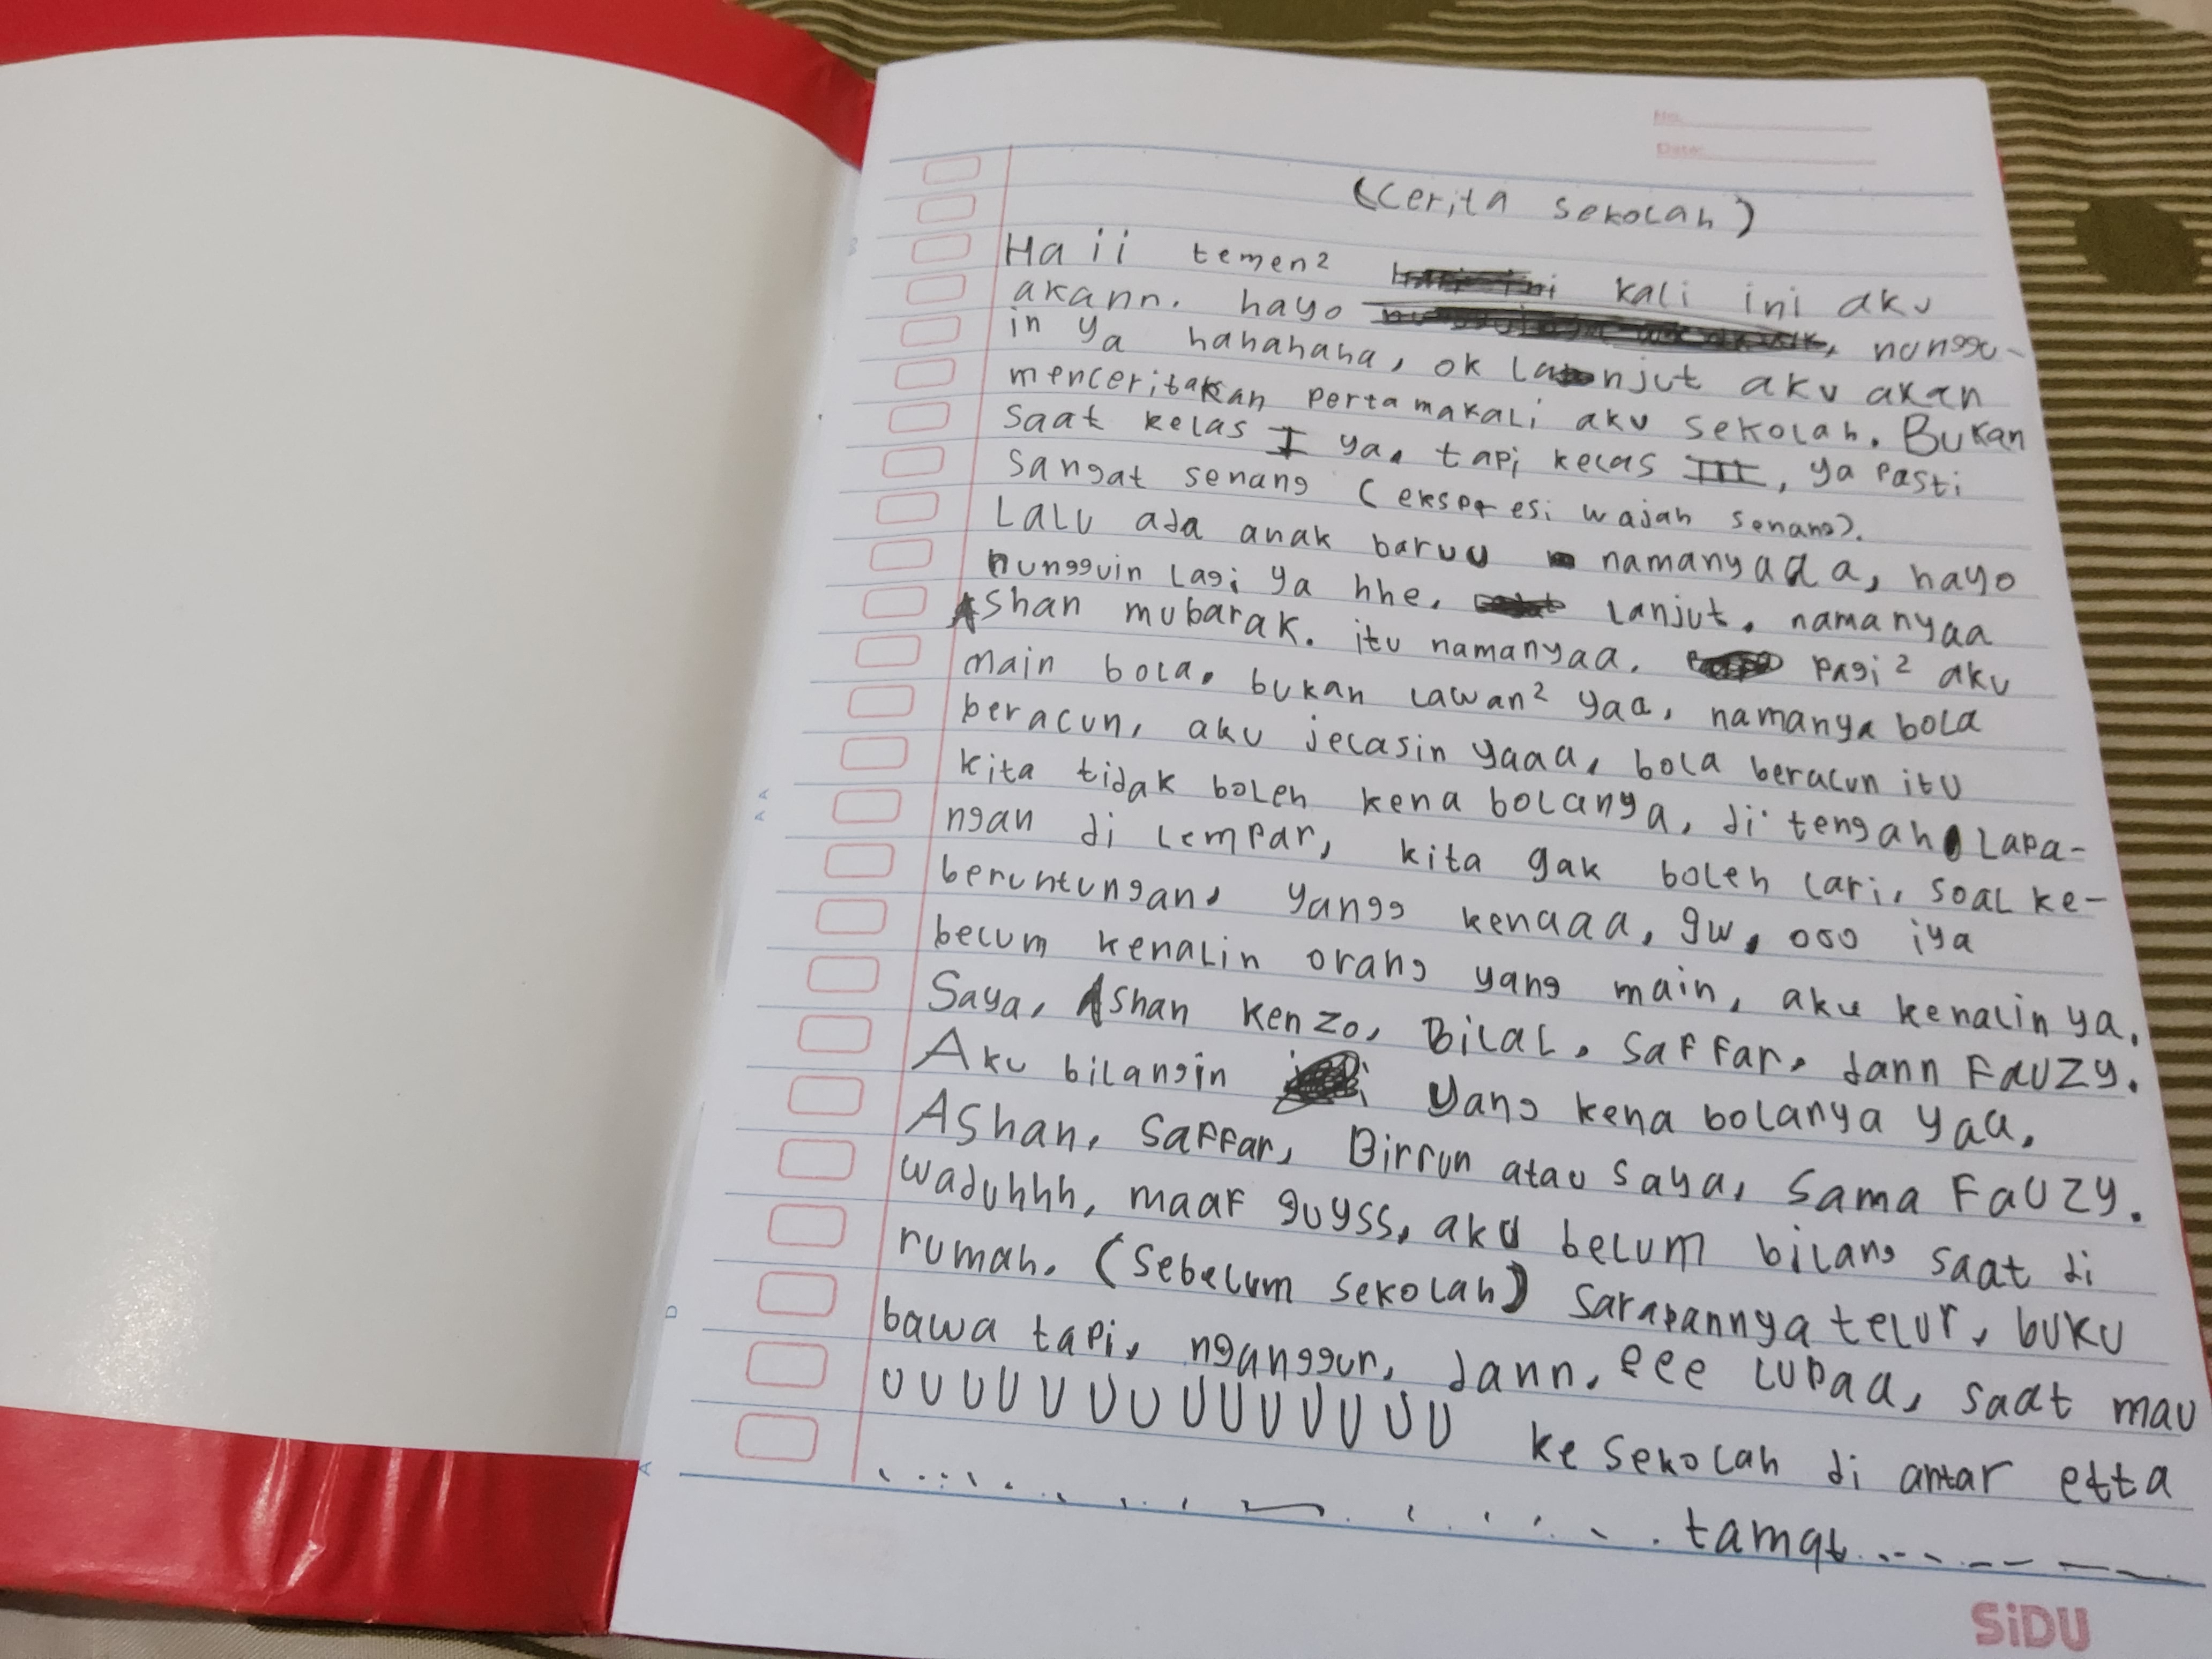 No.
Date:
(Cerita sekolah)
Haii temen² kali ini aku
akann. hayo , nunggu-
in ya hahahaha, ok lanjut aku akan
menceritakan pertamakali aku sekolah. Bukan
saat kelas I ya, tapi kelas III, ya pasti
sangat senang (ekspresi wajah senang).
Lalu ada anak baruu namanyada a, hayo
nungguin lagi ya hhe. lanjut. namanyaa
Ashan mubarak. itu namanyaa. pagi² aku
main bola. bukan lawan² yaa, namanya bola
beracun, aku jelasin yaaa, bola beracun itu
kita tidak boleh kena bolanya, di tengah lapa-
ngan di lempar, kita gak boleh lari, soal ke-
beruntungan, yangg kenaaa, gw, ooo iya
belum kenalin orang yang main, aku kenalin ya.
Saya, Ashan Kenzo, Bilal, Saffar, dann Fauzy.
Aku bilangin yang kena bolanya yaa.
Ashan, Saffar, Birrun atau saya, sama Fauzy.
waduhhh, maaf guyss, aku belum bilang saat di
rumah. (Sebelum sekolah) Sarapannya telur, buku
bawa tapi, nganggur, dann, eee lupaa, saat mau
UUUUUUUUUUUUUU ke sekolah di antar etta
tamat
SiDU